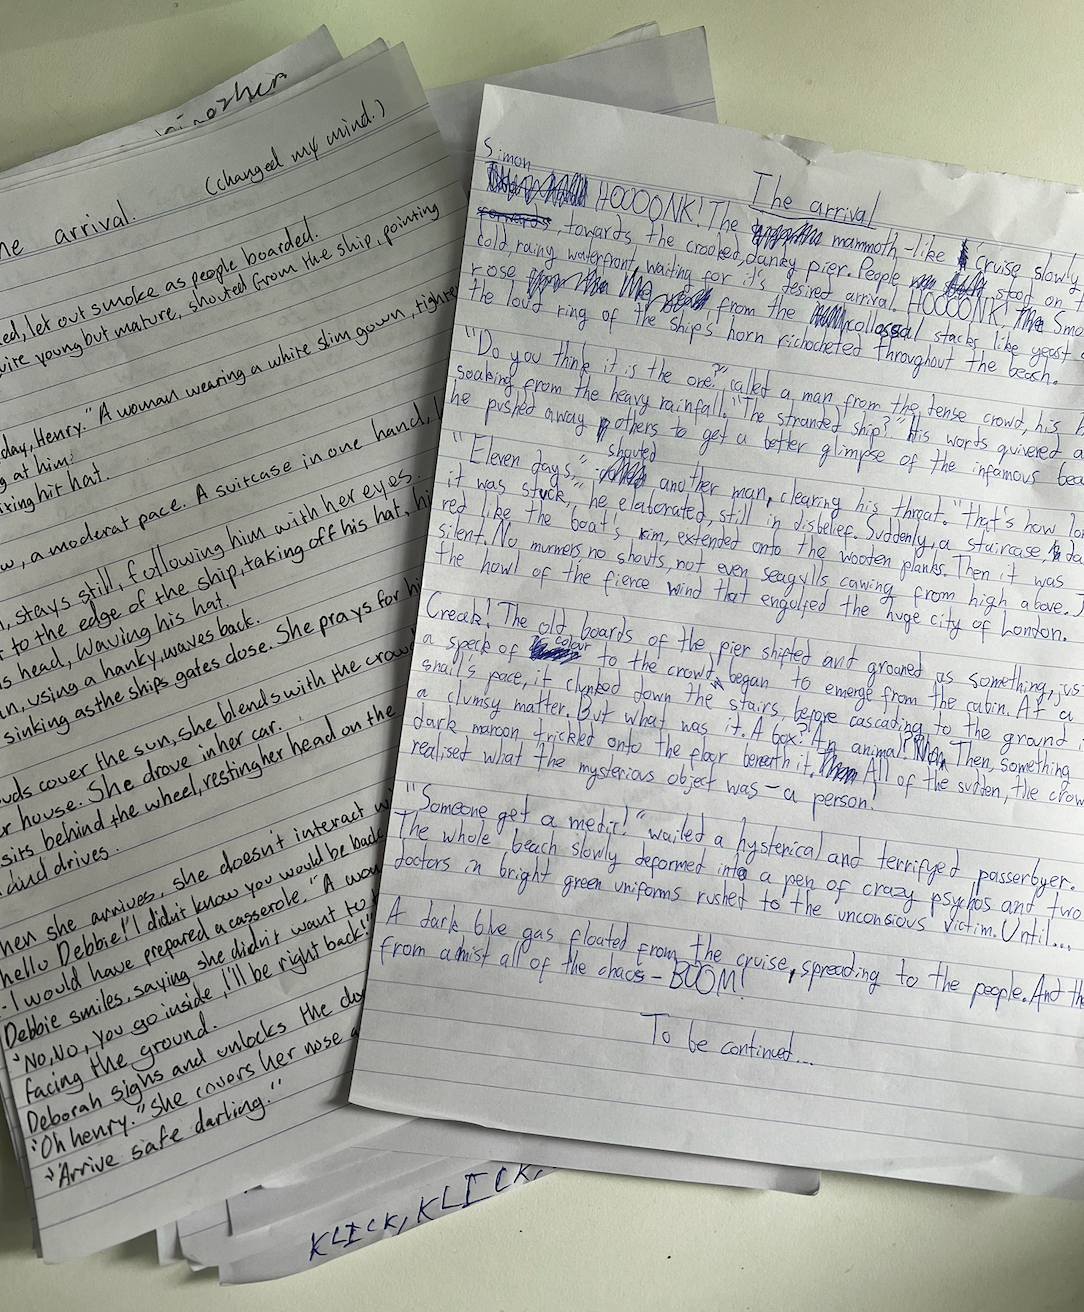 another
The arrival. (changed my mind.)
ed, let out smoke as people boarded.
quite young but mature, shouted from the ship, pointing
day, Henry." A woman wearing a white slim gown, tighte
g at him.
xing hit hat.
w, a moderat pace. A suitcase in one hand,
n, stays still, following him with her eyes.
r to the edge of the ship, taking off his hat, hi
s head, waving his hat.
n, using a hanky, waves back.
sinking as the ships gates close. She prays for hi
uds cover the sun, she blends with the crow
r house. She drove in her car.
sits behind the wheel, resting her head on the
and drives.
hen she arrives, she doesn't interact w
hello Debbie!" I didn't know you would be back
- I would have prepared a casserole." A wo
Debbie smiles, saying she didn't want to
"No, No, you go inside, I'll be right back!"
facing the ground.
Deborah sighs and unlocks the do
"Oh henry." She covers her nose a
"Arrive safe darling."
KLICK, KLICK,
Simon
The arrival
HOOOONK! The mammoth-like cruise slowly
, towards the crooked, danky pier. People stood on t
cold, rainy waterfront, waiting for it's desired arrival. HOOOONK! Smo
rose from the collossal stacks like yeast
the loud ring of the ship's horn richocheted throughout the beach.
"Do you think it is the one?" called a man from the tense crowd, his
soaking from the heavy rainfall. "The stranded ship?" His words quivered a
he pushed away others to get a better glimpse of the infamous bea
"Eleven days," shouted another man, clearing his throat. "that's how lon
it was stuck," he elaborated, still in disbelief. Suddenly, a staircase, da
red like the boat's rim, extended onto the wooden planks. Then it was
silent. No murmers, no shouts, not even seagylls cawing from high above. J
the howl of the fierce wind that engulfed the huge city of London.
Creak! The old boards of the pier shifted and groaned as something, jus
a speck of colour to the crowd, began to emerge from the cabin. At a
snail's pace, it clunked down the stairs, before cascading to the ground i
a clumsy matter. But what was it. A box? An animal? Then, something
dark maroon trickled onto the floor beneath it. All of the sudden, the crow
realised what the mysterious object was - a person!
"Someone get a medic!" wailed a hysterical and terrifyed passerbyer.
The whole beach slowly deformed into a pen of crazy psychos and two
doctors in bright green uniforms rushed to the unconsious victim. Until...
A dark blue gas floated from the cruise, spreading to the people. And the
from amist all of the chaos - BOOM!
To be continued...